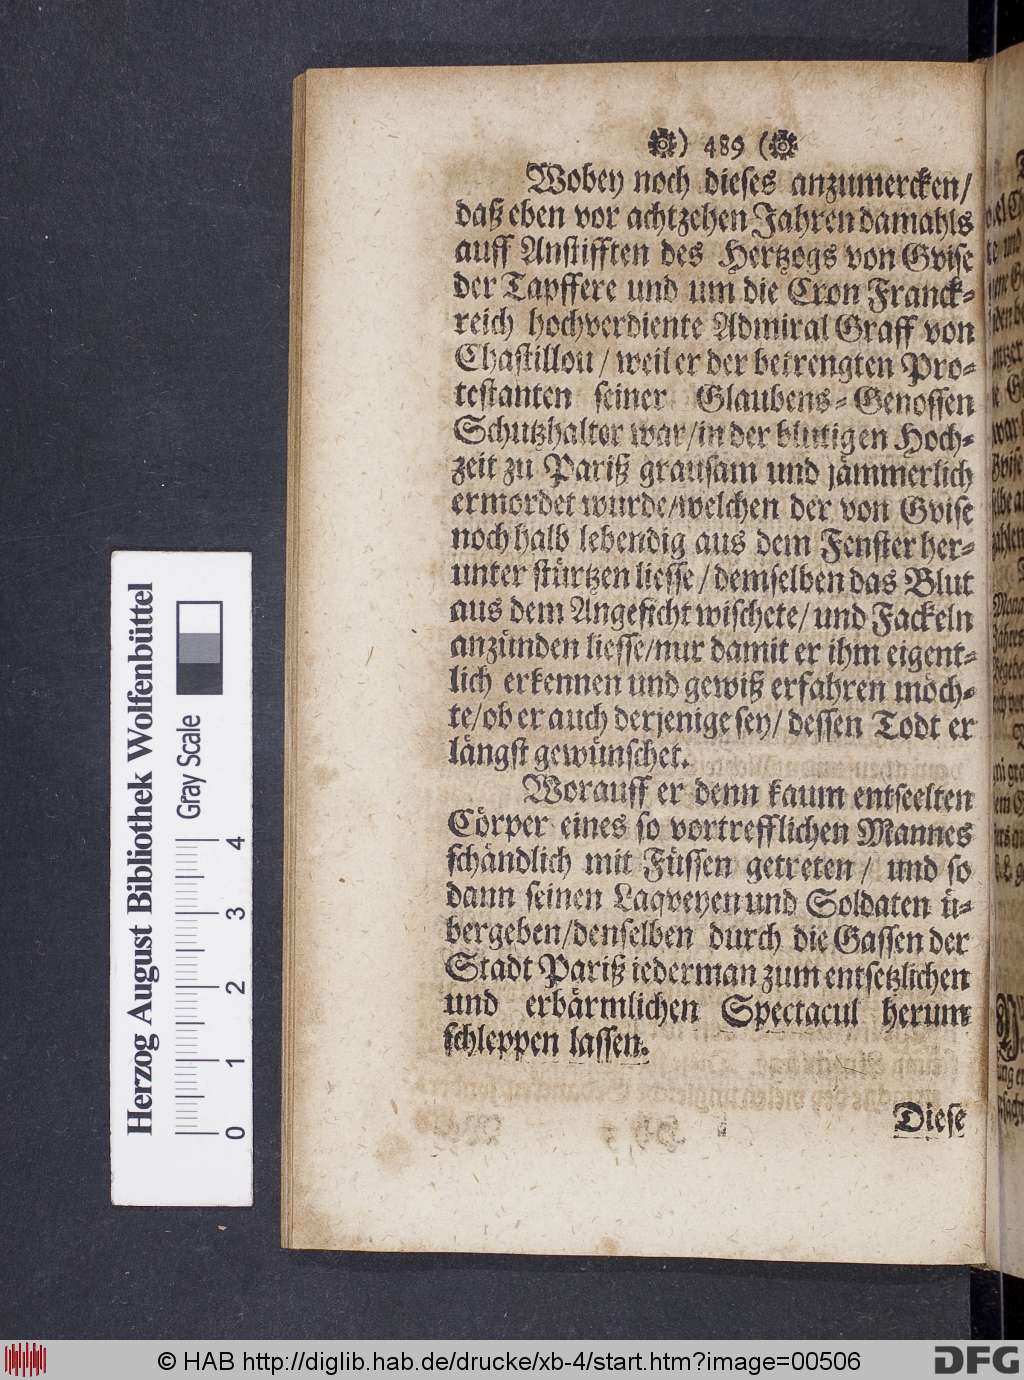 ) 489 (
Wobey noch dieses anzumercken/
daß eben vor achtzehen Jahren damahls
auff Anstifften des Hertzogs von Gvise
der Tapffere und um die Cron Franck-
reich hochverdiente Admiral Graff von
Chastillon / weil er der betrengten Pro-
testanten seiner Glaubens-Genossen
Schutzhalter war/in der blutigen Hoch-
zeit zu Pariß grausam und jämmerlich
ermordet wurde/welchen der von Gvise
noch halb lebendig aus dem Fenster her-
unter stürtzen liesse / demselben das Blut
aus dem Angesicht wischete / und Fackeln
anzünden liesse/nur damit er ihm eigent-
lich erkennen und gewiß erfahren möch-
te/ob er auch derjenige sey / dessen Todt er
längst gewünschet.
Worauff er denn kaum entseelten
Cörper eines so vortrefflichen Mannes
schändlich mit Füssen getreten / und so
dann seinen Laqveyen und Soldaten ü-
bergeben/denselben durch die Gassen der
Stadt Pariß iederman zum entsetzlichen
und erbärmlichen Spectacul herum
schleppen lassen.
Diese
Herzog August Bibliothek Wolfenbüttel
Gray Scale
0 1 2 3 4
© HAB http://diglib.hab.de/drucke/xb-4/start.htm?image=00506
DFG